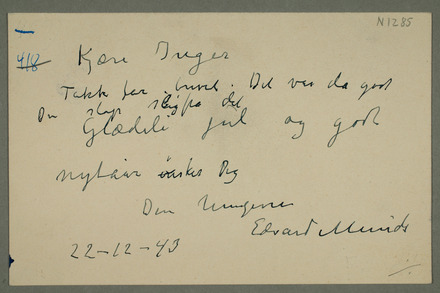 N 1285
418
Kjære Inger
Takk for brevet. Det var da godt
Du slap slig fra det
Glædeli jul og godt
nytaar ønskes Dig
Din hengivne
Edvard Munch
22-12-43